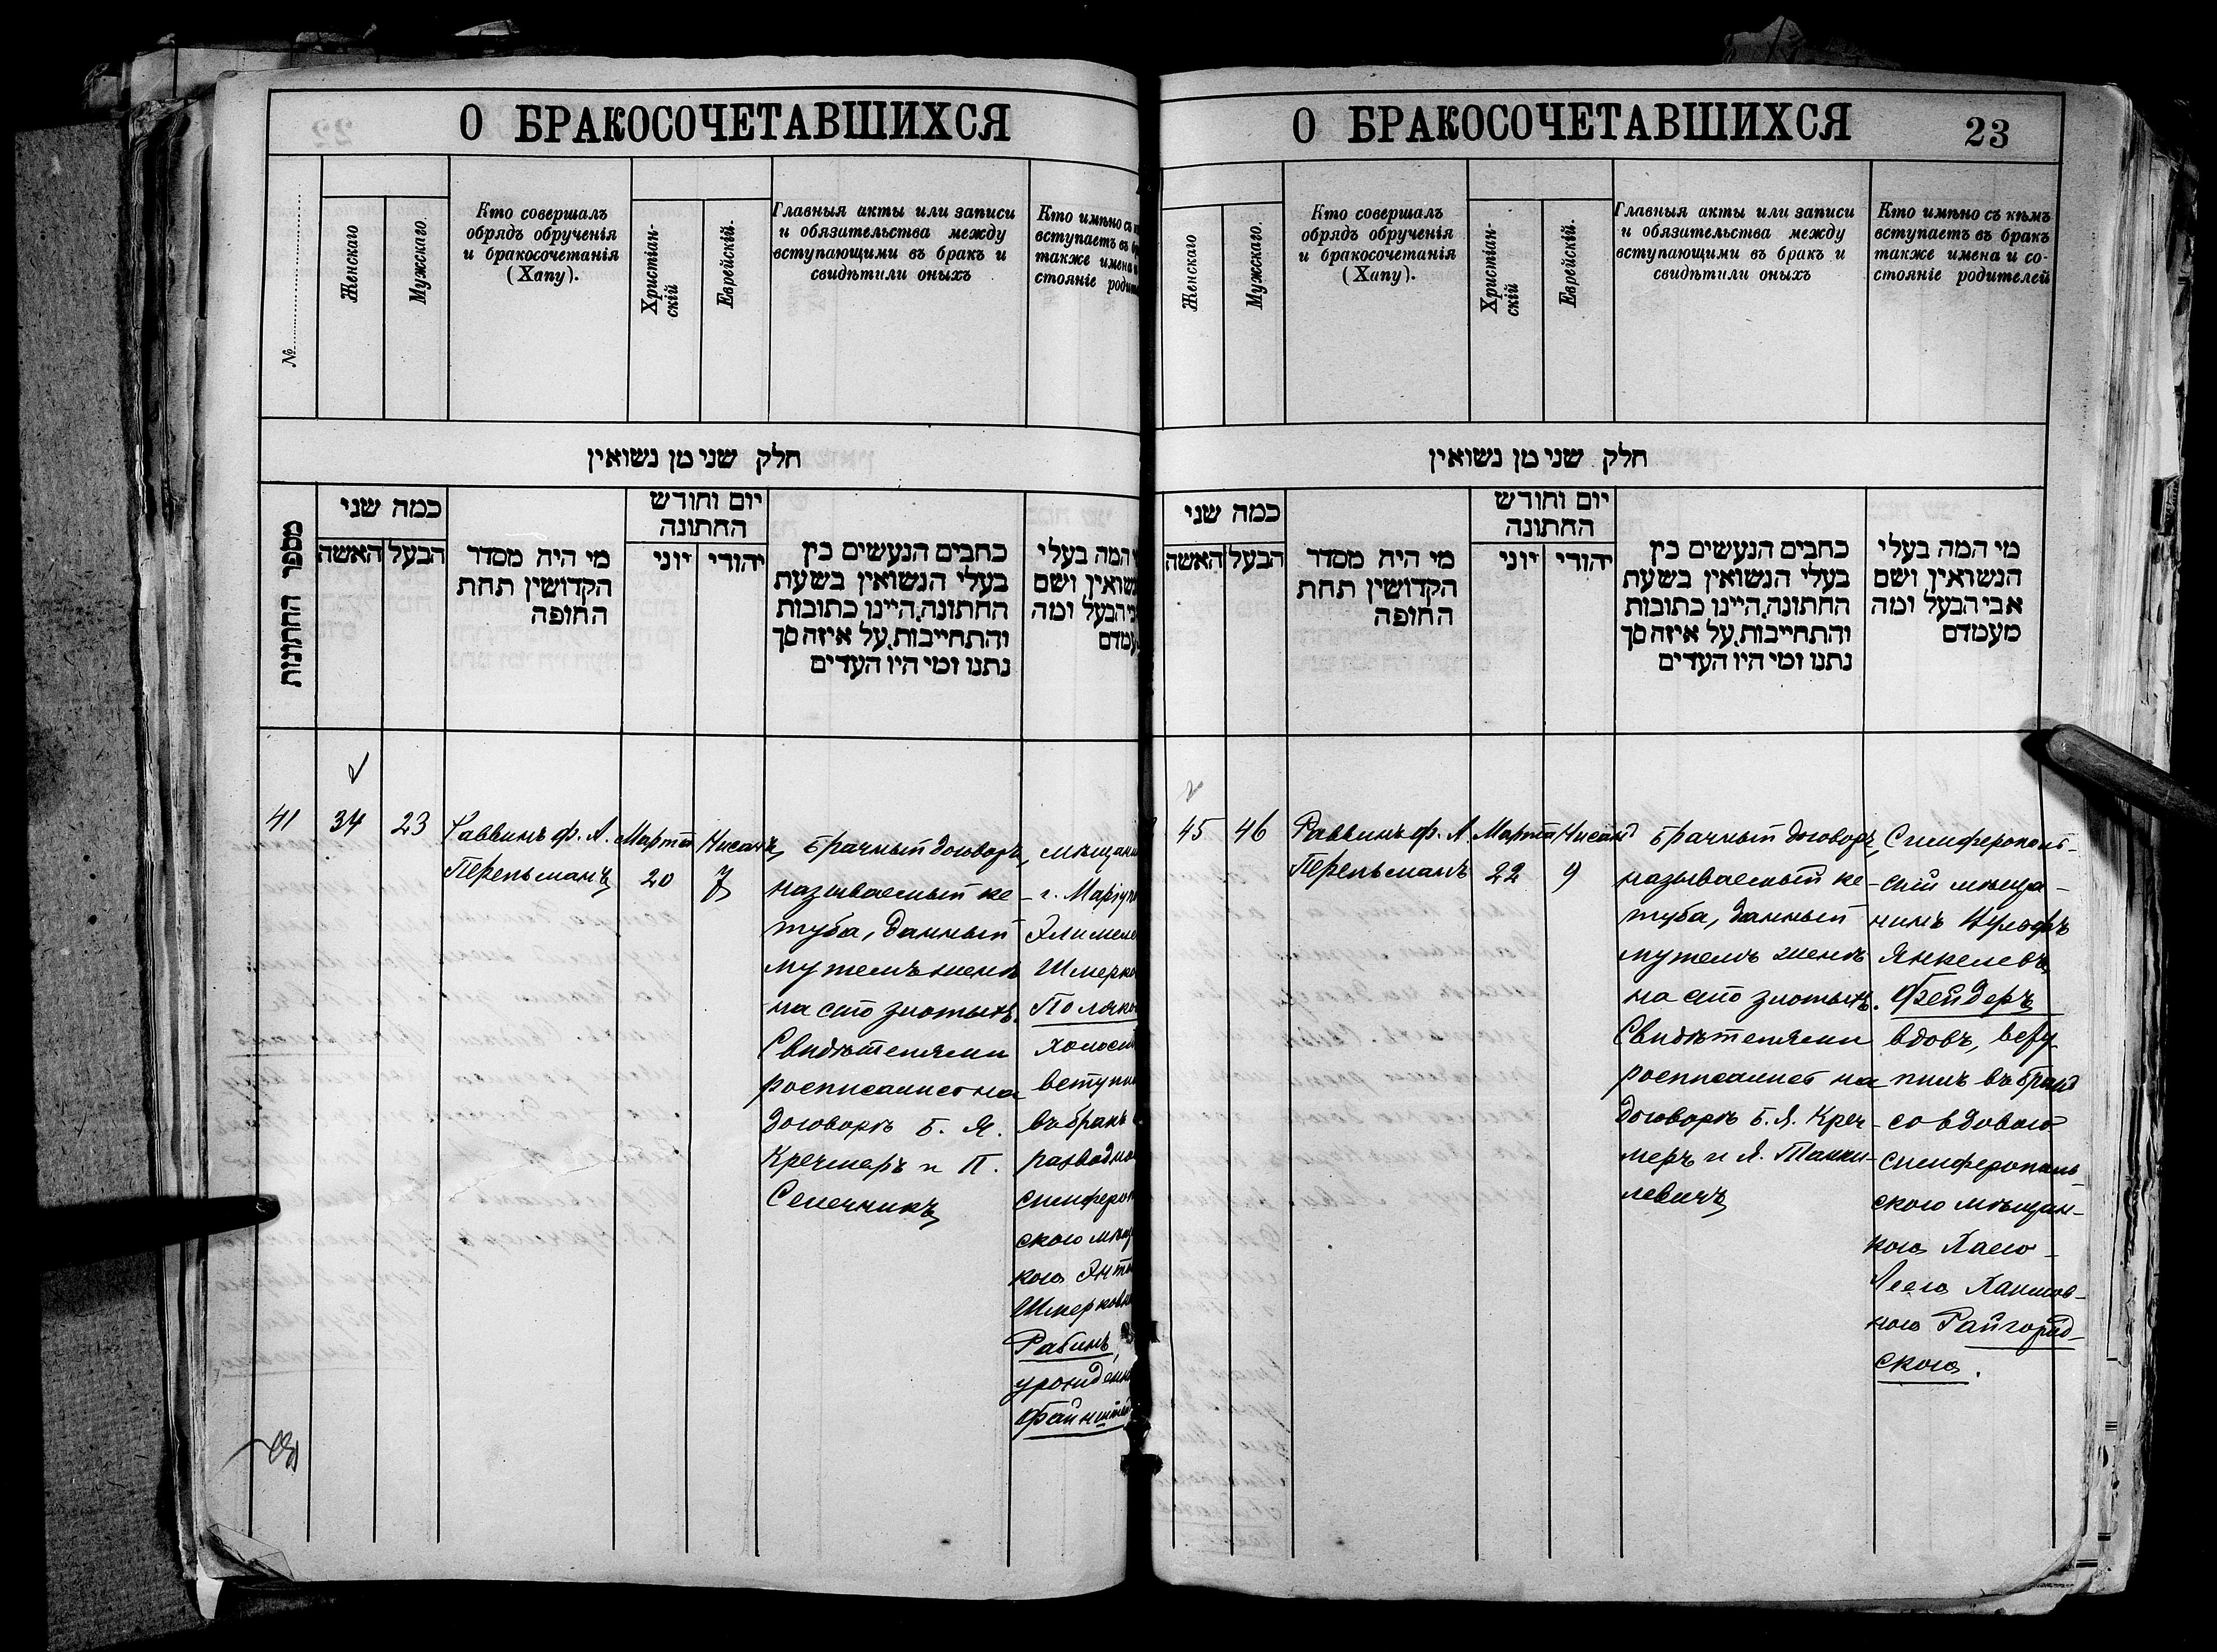 О БРАКОСОЧЕТАВШИХСЯ
№
Женскаго
Мужскаго.
Кто совершалъ
обрядъ обрученія
и бракосочетанія
(Хапу).
Христіан-
скій
Еврейскій.
Главныя акты или записи
и обязательства между
вступающими въ бракъ и
свидѣтили оныхъ
Кто имѣно съ
вступаетъ въ
также имена и
стояніе
חלק שני מן נשואין
מספר החתונות
כמה שני
האשה
הבעל
מי היה מסדר
הקדושין תחת
החופה
יום וחודש
החתונה
יוני
יהודי
כתבים הנעשים בין
בעלי הנשואין בשעת
החתונה, היינו כתובות
והתחייבות, על איזה סך
נתנו ומי היו העדים
המה בעלי
נשואין ושם
הבעל ומה
41
34
23
Раввинъ Ф. А.
Перельманъ
Марта
20
Нисанъ
7
Брачный договоръ,
называемый ке-
туба, данный
мужемъ женѣ
на сто злотыхъ.
Свидѣтелями
росписались на
договорѣ Б. Я.
Кречмеръ и П.
Селечникъ
г.
въ бракъ
Рабинъ,
О БРАКОСОЧЕТАВШИХСЯ
23
Женскаго
Мужскаго.
Кто совершалъ
обрядъ обрученія
и бракосочетанія
(Хапу).
Христіан-
скій
Еврейскій.
Главныя акты или записи
и обязательства между
вступающими въ бракъ и
свидѣтили оныхъ
Кто имѣно съ кѣмъ
вступаетъ въ бракъ
также имена и со-
стояніе родителей
חלק שני מן נשואין
כמה שני
האשה
הבעל
מי היה מסדר
הקדושין תחת
החופה
יום וחודש
החתונה
יוני
יהודי
כתבים הנעשים בין
בעלי הנשואין בשעת
החתונה, היינו כתובות
והתחייבות, על איזה סך
נתנו ומי היו העדים
מי המה בעלי
הנשואין ושם
אבי הבעל ומה
מעמדם
45
46
Раввинъ Ф. А.
Перельманъ
Марта
22
Нисанъ
9
Брачный договоръ,
называемый ке-
туба, данный
мужемъ женѣ
на сто злотыхъ.
Свидѣтелями
росписались на
договорѣ Б. Я. Креч-
меръ и Я. Танхи-
левичъ
Симферополь-
скій мѣща-
нинъ
Янкелевъ
Фейдеръ
вдовъ, всту-
пилъ въ бракъ
со вдовою
симферополь-
скою мѣщан-
кою Хаею-
Леею Хаимов-
ною Райгород-
скою.